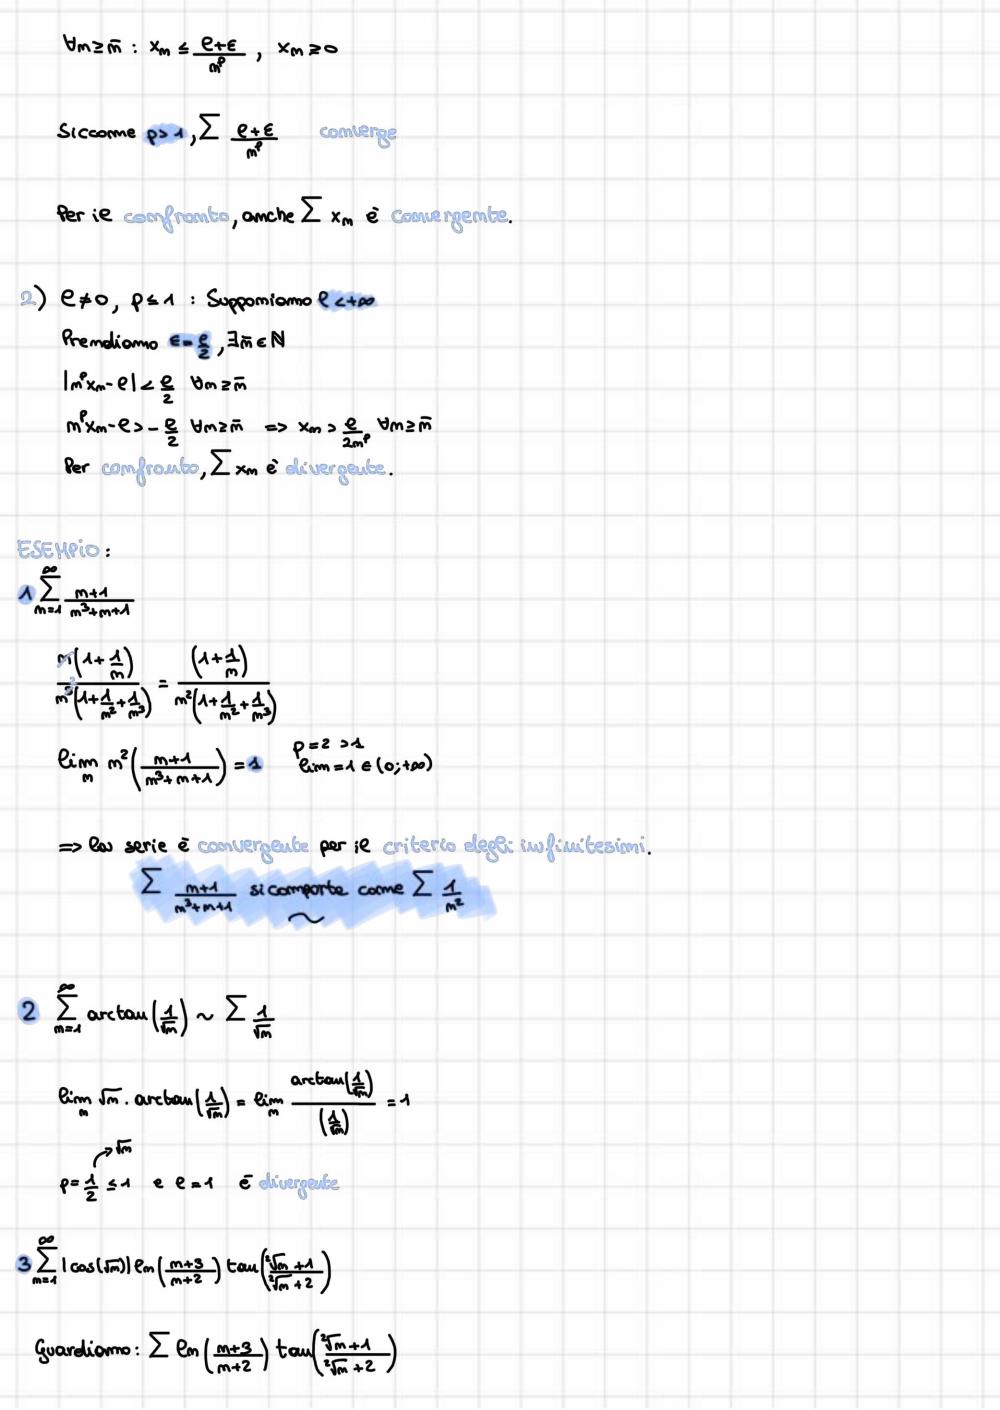 ∀n ≥ n̄ : xₙ ≤ (ℓ+ε)/nᵖ , xₙ ≥ 0
Siccome p > 1, ∑ (ℓ+ε)/nᵖ converge
Per il confronto, anche ∑ xₙ è convergente.
2) ℓ ≠ 0, p ≤ 1 : Supponiamo ℓ < +∞
Prendiamo ε = ℓ/2, ∃n̄ ∈ ℕ
|nᵖxₙ - ℓ| < ℓ/2 ∀n ≥ n̄
nᵖxₙ - ℓ > - ℓ/2 ∀n ≥ n̄ => xₙ > ℓ/(2nᵖ) ∀n ≥ n̄
Per confronto, ∑ xₙ è divergente.
ESEMPIO:
1 ∑_{n=1}^{∞} (n+1)/(n³+n+1)
n(1+1/n)/(n³(1+1/n²+1/n³)) = (1+1/n)/(n²(1+1/n²+1/n³))
lim_n n²((n+1)/(n³+n+1)) = 1 p = 2 > 1
lim = 1 ∈ (0;+∞)
=> la serie è convergente per il criterio degli infinitesimi.
∑ (n+1)/(n³+n+1) si comporta come ∑ 1/n²
~
2 ∑_{n=1}^{∞} arctan(1/√n) ~ ∑ 1/√n
lim_n √n · arctan(1/√n) = lim_n arctan(1/√n)/(1/√n) = 1
√n
p = 1/2 ≤ 1 e ℓ = 1 è divergente
3 ∑_{n=1}^{∞} |cos(√n)| ln((n+3)/(n+2)) tan((²√n + 1)/(²√n + 2))
Guardiamo: ∑ ln((n+3)/(n+2)) tan((²√n + 1)/(²√n + 2))